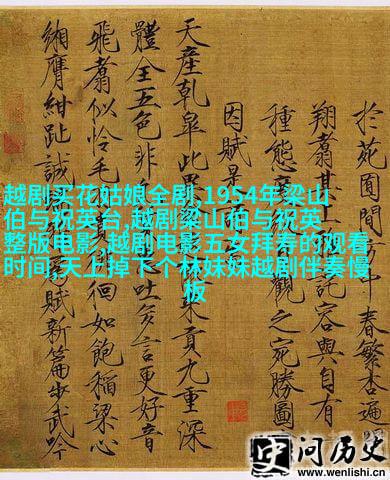 越剧买花姑娘全剧,1954年梁山
伯与祝英台,越剧梁山伯与祝英
整版电影,越剧电影五女拜寿的观看
时间,天上掉下个林妹妹越剧伴奏慢
板
於苑囿間方中春繁杏遍
翔翥其上詫容與自有
種態度觀之宛勝圖
因賦是
天產乾皋此異來貢九重深
體全五色非吐多言更好音
飛翥似怜毛徊如飽稻粱心
緗膺紺趾誠賦新篇步武吟
问历史
www.wenlishi.cn